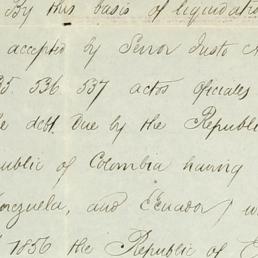 By this basis of liquidatio
accepted by Senor Justo A
35 536 537 actos oficiales
debt due by the Republi
public of Colombia having
nezuela, and Ecuador) w
1856 the Republic of E